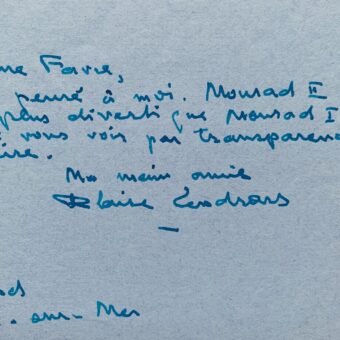 me Favre,
pensé à moi. Monsad II
plus diverti que Monsad I
vous vois par transparen
ire.
Ma main amie
Blaise Cendrars
. sur-Mer